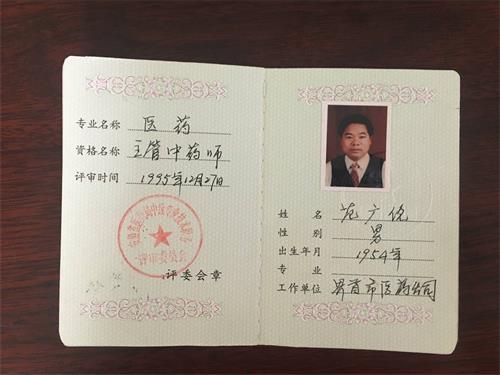 专业名称 医药
资格名称 主管中药师
评审时间 1995年12月27日
评审委员会
评委会章
姓名 范广
性别 男
出生年月 1954年
专业
工作单位 界首市医药公司